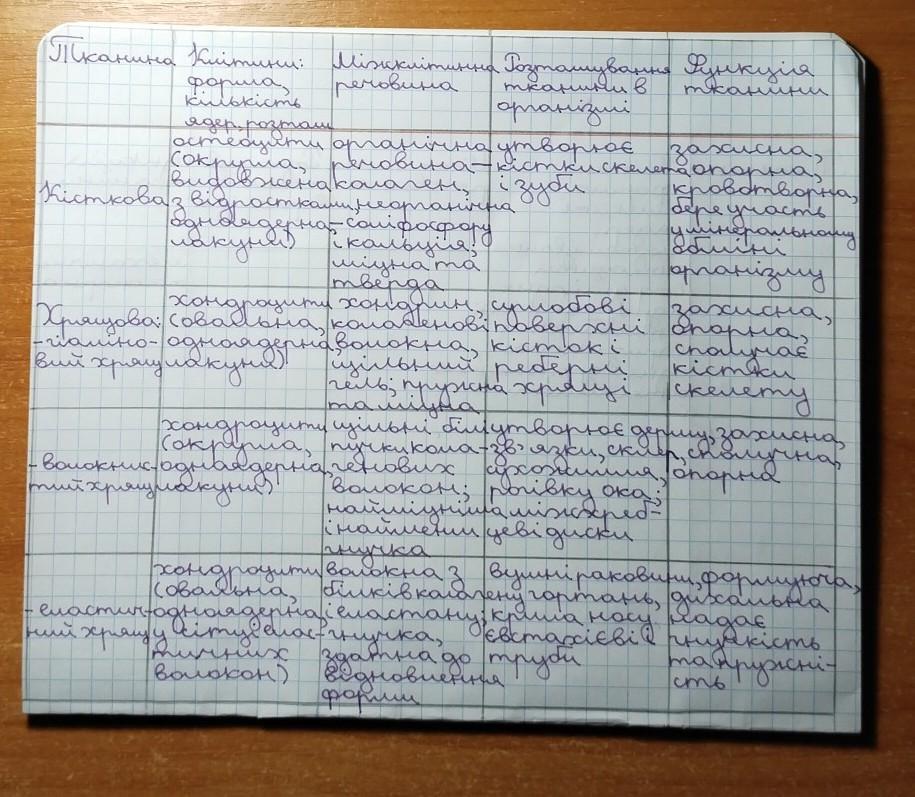 Тканина
Клітини:
форма,
кількість
ядер, розташ
Міжклітинна
речовина
Розташування
тканини в
організмі
Функція
тканини
Кісткова
остеоцити
(округла,
видовжена
з відростками,
одноядерна,
лакуни)
органічна
речовина—
колаген,
неорганічна
– солі фосфору
і кальція;
міцна та
тверда
утворює
кістки скелета
і зуби
захисна,
опорна,
кровотворна,
бере участь
у мінеральному
обміні
організму
Хрящова:
-гіаліно-
вий хрящ
хондроцити
(овальна,
одноядерна,
лакуни)
хондрин,
колагенові
волокна,
щільний
гель; пружна
та міцна
суглобові
поверхні
кісток і
реберні
хрящі
захисна,
опорна,
сполучає
кістки
скелету
-волокнис-
тий хрящ
хондроцити
(округла,
одноядерна,
лакуни)
щільні білі
пучки кола-
генових
волокон;
найміцніша
і найменш
гнучка
утворює дерму,
зв'язки, склер,
сухожилля,
рогівку ока;
міжхреб-
цеві диски
захисна,
сполучна,
опорна
-еластич-
ний хрящ
хондроцити
(овальна,
одноядерна,
у сітці елас-
тичних
волокон)
волокна з
білків колагену
і еластану;
гнучка,
здатна до
відновлення
форми
вушні раковини,
гортань,
крила носу
євстахієві
труби
формуюча,
дихальна
надає
гнучкість
та пружні-
сть